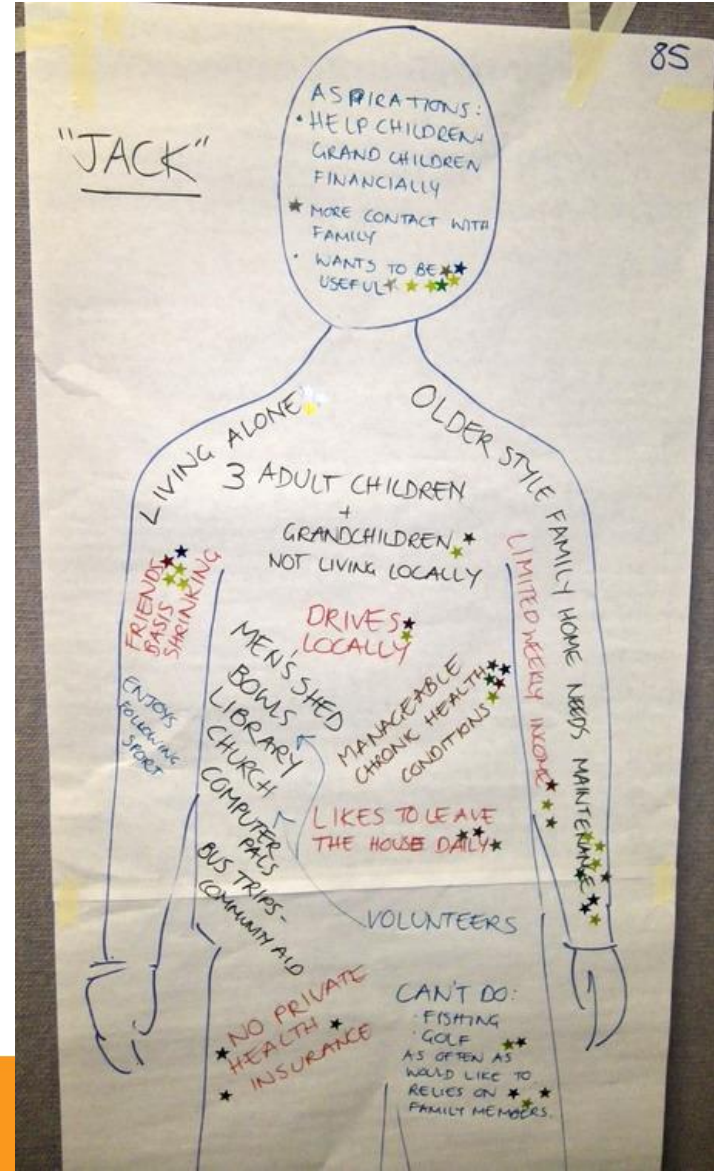 85
"JACK"
ASPIRATIONS:
• HELP CHILDREN +
GRAND CHILDREN
FINANCIALLY
MORE CONTACT WITH
FAMILY
• WANTS TO BE
USEFUL
LIVING ALONE
OLDER STYLE FAMILY HOME NEEDS MAINTENANCE
3 ADULT CHILDREN
+
GRANDCHILDREN
NOT LIVING LOCALLY
FRIENDS
BASIS
SHRINKING
LIMITED WEEKLY INCOME
DRIVES
LOCALLY
ENJOYS
FOLLOWING
SPORT
MEN'S SHED
BOWLS
LIBRARY
CHURCH
COMPUTER
PALS
BUS TRIPS -
COMMUNITY AID
MANAGEABLE
CHRONIC HEALTH
CONDITIONS
LIKES TO LEAVE
THE HOUSE DAILY
VOLUNTEERS
NO PRIVATE
HEALTH
INSURANCE
CAN'T DO:
• FISHING
• GOLF
AS OFTEN AS
WOULD LIKE TO
RELIES ON
FAMILY MEMBERS.